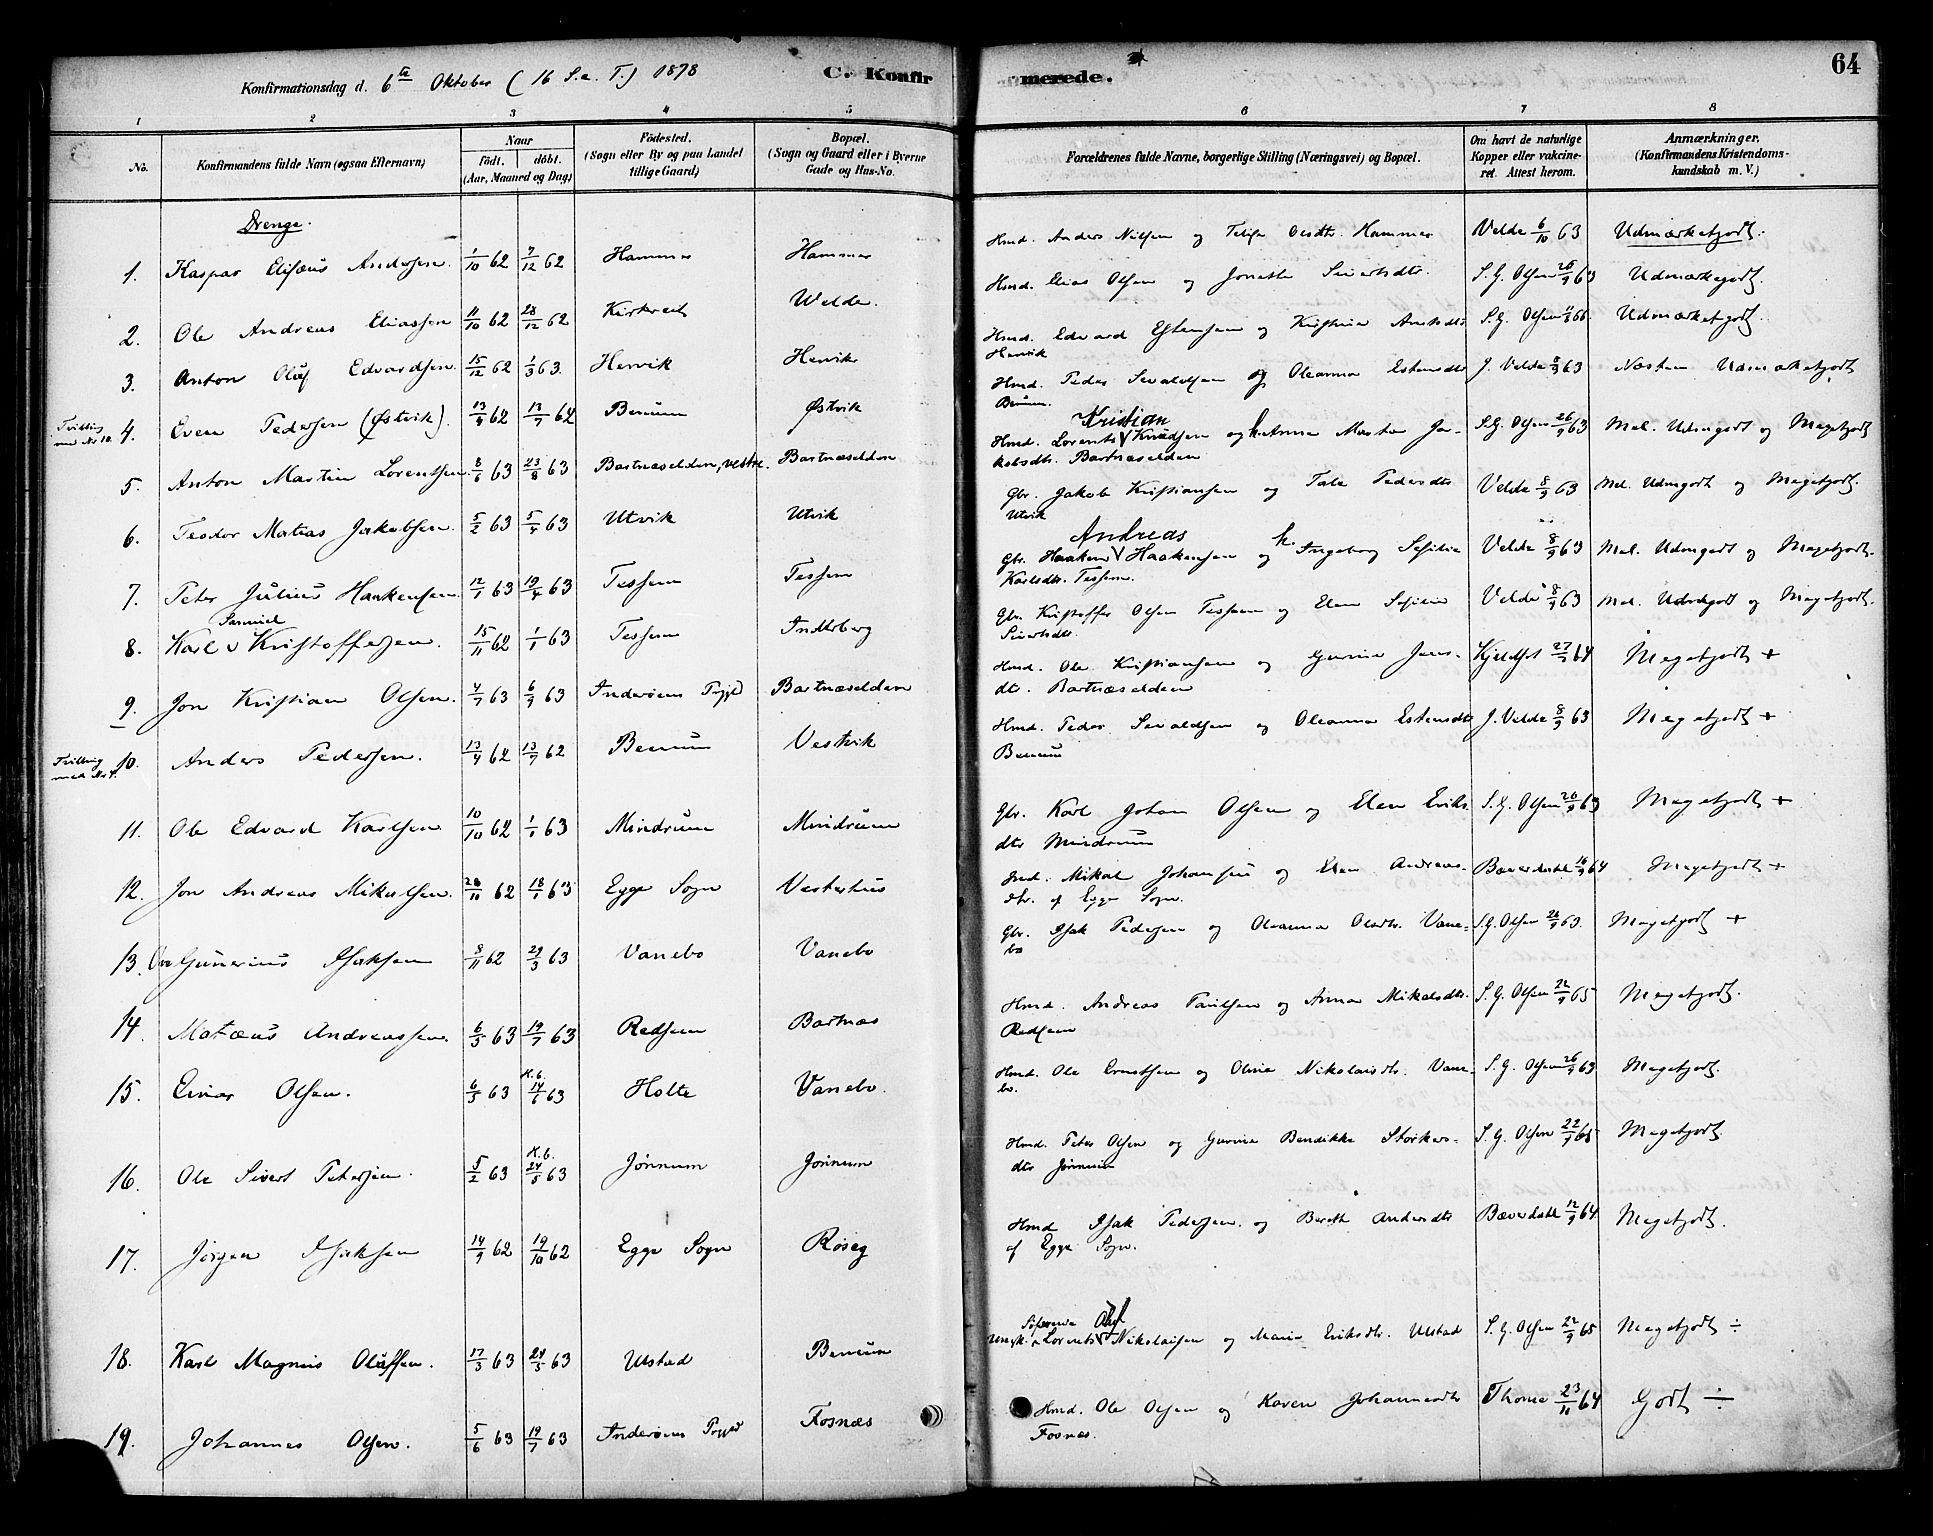 Konfirmationsdag d. 6te Oktober (16 S. e. T.) 1878 C. Konfir merede. 64
1 2 3 4 5 6 7 8
No. Konfirmandens fulde Navn (ogsaa Efternavn) Naar født. døbt. (Aar, Maaned og Dag) Fødested. (Sogn eller By og paa Landet tillige Gaard) Bopæl. (Sogn og Gaard eller i Byerne Gade og Hus-No. Forældrenes fulde Navne, borgerlige Stilling (Næringsvei) og Bopæl. Om havt de naturlige Kopper eller vakcineret. Attest herom. Anmærkninger, (Konfirmandens Kristendomskundskab m. V.)
Drenge.
1. Kaspar Elisæus Andersen. 1/10 62 7/12 62 Hammer Hammer Hmd. Anders Nilsen og Olsdtr. Hammer Velde 6/10 63 Udmærketgodt.
2. Ole Andreas Eliassen 11/10 62 28/12 62 Welde. Hmd. Elias Olsen og Jonetta Sivertsdtr. S. G. Olsen 26/9 63 Udmærketgodt.
3. Anton Oluf Edvardsen. 15/12 62 1/3 63. Henvik Henvik Hmd. Edvard Estensen og Kristina Arntsdtr Henvik S. G. Olsen 66. Udmærketgodt.
Tvilling med No 10. 4. Even Pedersen (Østvik). 13/4 62 13/7 62 Benum Østvik Hmd. Peder Sevaldsen og Oleanna Estensdtr Benum. J. Velde 8/9 63 Næsten Udmærketgodt
5. Anton Martin Lorentsen. 8/6 63 23/8 63 Bartnæselden, vestre. Bartnæselden Hmd. Lorents Kristian Knudsen og k. Anna Marta Jakobsdtr. Bartnæselden S. G. Olsen 26/9 63 Mel. Udmgodt og Megetgodt
6. Teodor Matias Jakobsen. 5/2 63 5/4 63 Utvik Utvik Gbr. Jakob Kristiansen og Tale Pedersdtr Utvik Velde 8/9 63 Mel. Udmgodt og Megetgodt.
7. Peter Julius Haakensen. 12/1 63 19/4 63 Tessem Tessem Gbr. Haaken Andreas Haakensen og k. Ingeborg Sofie Karlsdtr. Tessem. Velde 8/9 63 Mel. Udmgodt og Megetgodt.
8. Karl Samuel Kristoffersen. 15/11 62 1/1 63 Tessem Inderberg Gbr. Kristoffer Olsen Tessem og Elen Sivertsdtr. Velde 8/9 63 Mel. Udmgodt og Megetgodt.
9. Jon Kristian Olsen. 4/7 63 6/9 63 Inderøens Prgjd Bartnæselden Hmd. Ole Kristiansen og Gurina Jensdtr. Bartnæselden 27/7 64 Megetgodt +
Tvilling med No 4. 10. Anders Pedersen. 13/4 62 13/7 62 Benum Vestvik Hmd. Peder Sevaldsen og Oleanna Estensdtr Benum J. Velde 8/9 63 Megetgodt +
11. Ole Edvard Karlsen 10/10 62 1/1 63 Mindrum Mindrum Gbr. Karl Johan Olsen og Elen Eriksdtr Mindrum S. G. Olsen 26/9 63 Megetgodt +
12. Jon Andreas Mikalsen. 28/11 62 18/1 63 Egge Sogn Vesterhus Ind. Mikal Johansen og Elen Andreasdtr. af Egge Sogn. Bæverdahl 64 Megetgodt +
13. Gunerius Isaksen 8/11 62 29/3 63 Vanebo Vanebo Gbr. Isak Pedersen og Oleanna Olsdtr. Vanebo S. G. Olsen 26/9 63. Megetgodt +
14. Matæus Andreassen. 6/5 63 19/7 63 Redsem Bartnæs Hmd. Andreas Paulsen og Anna Mikalsdtr. Redsem S. G. Olsen 22/9 65 Megetgodt.
15. Einar Olsen. 6/3 63 K.b. 14/6 63 Holte Vanebo. Hmd. Ole Ernstsen og Olina Nikolaisdtr. Vanebo. S. G. Olsen 26/9 63 Megetgodt.
16. Ole Sivert Petersen. 5/2 63 K.b. 24/5 63 Jønnum Jønnum Hmd. Peter Olsen og Gurina Bendikke Størkersdtr Jønnum S. G. Olsen 22/9 65 Megetgodt
17. Jørgen Isaksen 14/9 62 19/10 62 Egge Sogn Røseg Hmd Isak Pedersen. og Bereth Andersdtr af Egge Sogn. Bæverdahl 12/9 64 Megetgodt.
18. Karl Magnus Olufsen. 17/3 63 24/5 63 Ulstad Benum Ungk. Lorents Oluf Nikolaisen og Maria Eriksdtr. Ulstad S. G. Olsen 22/9 65 Megetgodt ÷
19. Johannes Olsen. 5/6 63 19/7 63 Inderøens Prgjd Fosnæs Hmd. Ole Olsen og Karen Johannesdtr Fosnæs. Thorne 23/11 64 Godt ÷